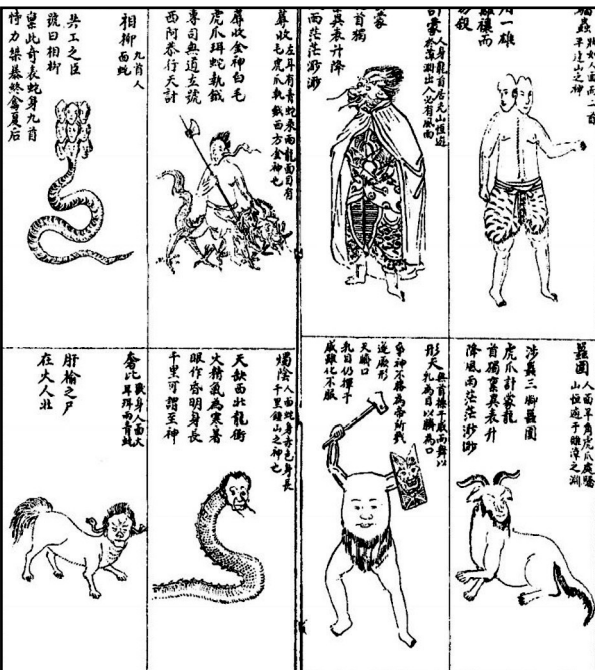 狀如人面而二首
平逢山之神
用一雄
雞禳而
勿殺
人身龍首居光山恒遊
於漳淵出入必有風雨
蒙
首獨
稟異表升降
風雨茫茫渺渺
蓐收 左耳有青蛇乘兩龍面目有
毛虎爪執鉞西方金神也
蓐收金神白毛
虎爪珥蛇執鉞
專司無道立號
西阿恭行天討
相柳 九首人
面蛇
共工之臣
號曰相柳
稟此奇表蛇身九首
恃力桀暴終禽夏后
鼉圍 人面羊角虎爪處驕
山恒遊于雎漳之淵
涉鼉三腳鼉圍
虎爪計蒙龍
首獨稟異表升
降風雨茫茫渺渺
形天 無首操干戚而舞以
乳為目以臍為口
爭神不勝為帝所戮
遂厥形
天臍口
乳目仍揮干
戚雖化不服
燭陰 人面蛇身赤色身長
千里鍾山之神也
天缺西北龍銜
火精氣為寒暑
眼作昏明身長
千里可謂至神
奢比 獸身人面大
耳珥兩青蛇
肝榆之尸
在大人北